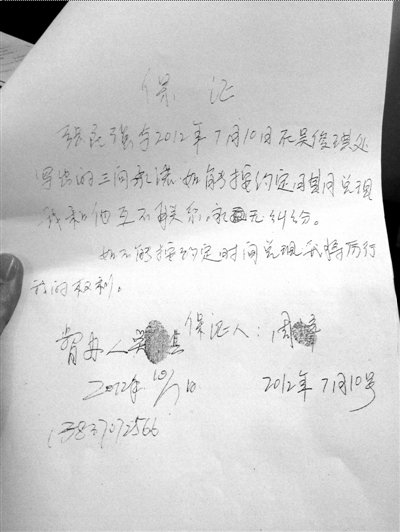 保 证
张 强于2012年7月10日在吴俊琪处
写出的三间承诺如能按约定日期间兑现
我和他互不联系,永 无纠纷。
如不能按约定时间兑现我将历行
我的权利。
保证人:周
2012年10/7
2012年7月10号
13837072566